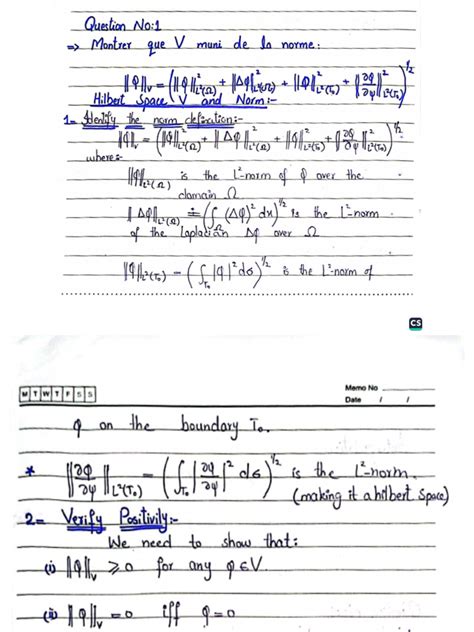 Question No:1
=> Montrer que V muni de la norme:
‖φ‖_V = (‖φ‖²_L²(Ω) + ‖Δφ‖²_L²(Ω) + ‖φ‖²_L²(Γ₀) + ‖∂φ/∂ψ‖²_L²(Γ₀))^1/2
Hilbert Space V and Norm:-
1- Identify the norm defination:-
‖φ‖_V = (‖φ‖²_L²(Ω) + ‖Δφ‖²_L²(Ω) + ‖φ‖²_L²(Γ₀) + ‖∂φ/∂ψ‖²_L²(Γ₀))^1/2
where:-
‖φ‖_L²(Ω) is the L²-norm of φ over the
domain Ω
‖Δφ‖_L²(Ω) = (∫_Ω (Δφ)² dx)^1/2 is the L²-norm
of the Laplacian Δφ over Ω
‖φ‖_L²(Γ₀) = (∫_Γ₀ |φ|² dσ)^1/2 is the L²-norm of
CS
M T W T F S S
Memo No
Date / /
φ on the boundary Γ₀.
* ‖∂φ/∂ψ‖_L²(Γ₀) = (∫_Γ₀ |∂φ/∂ψ|² dσ)^1/2 is the L²-norm.
(making it a hilbert space)
2- Verify Positivity:-
We need to show that:
(i) ‖φ‖_V ≥ 0 for any φ∈V.
(ii) ‖φ‖_V = 0 iff φ=0